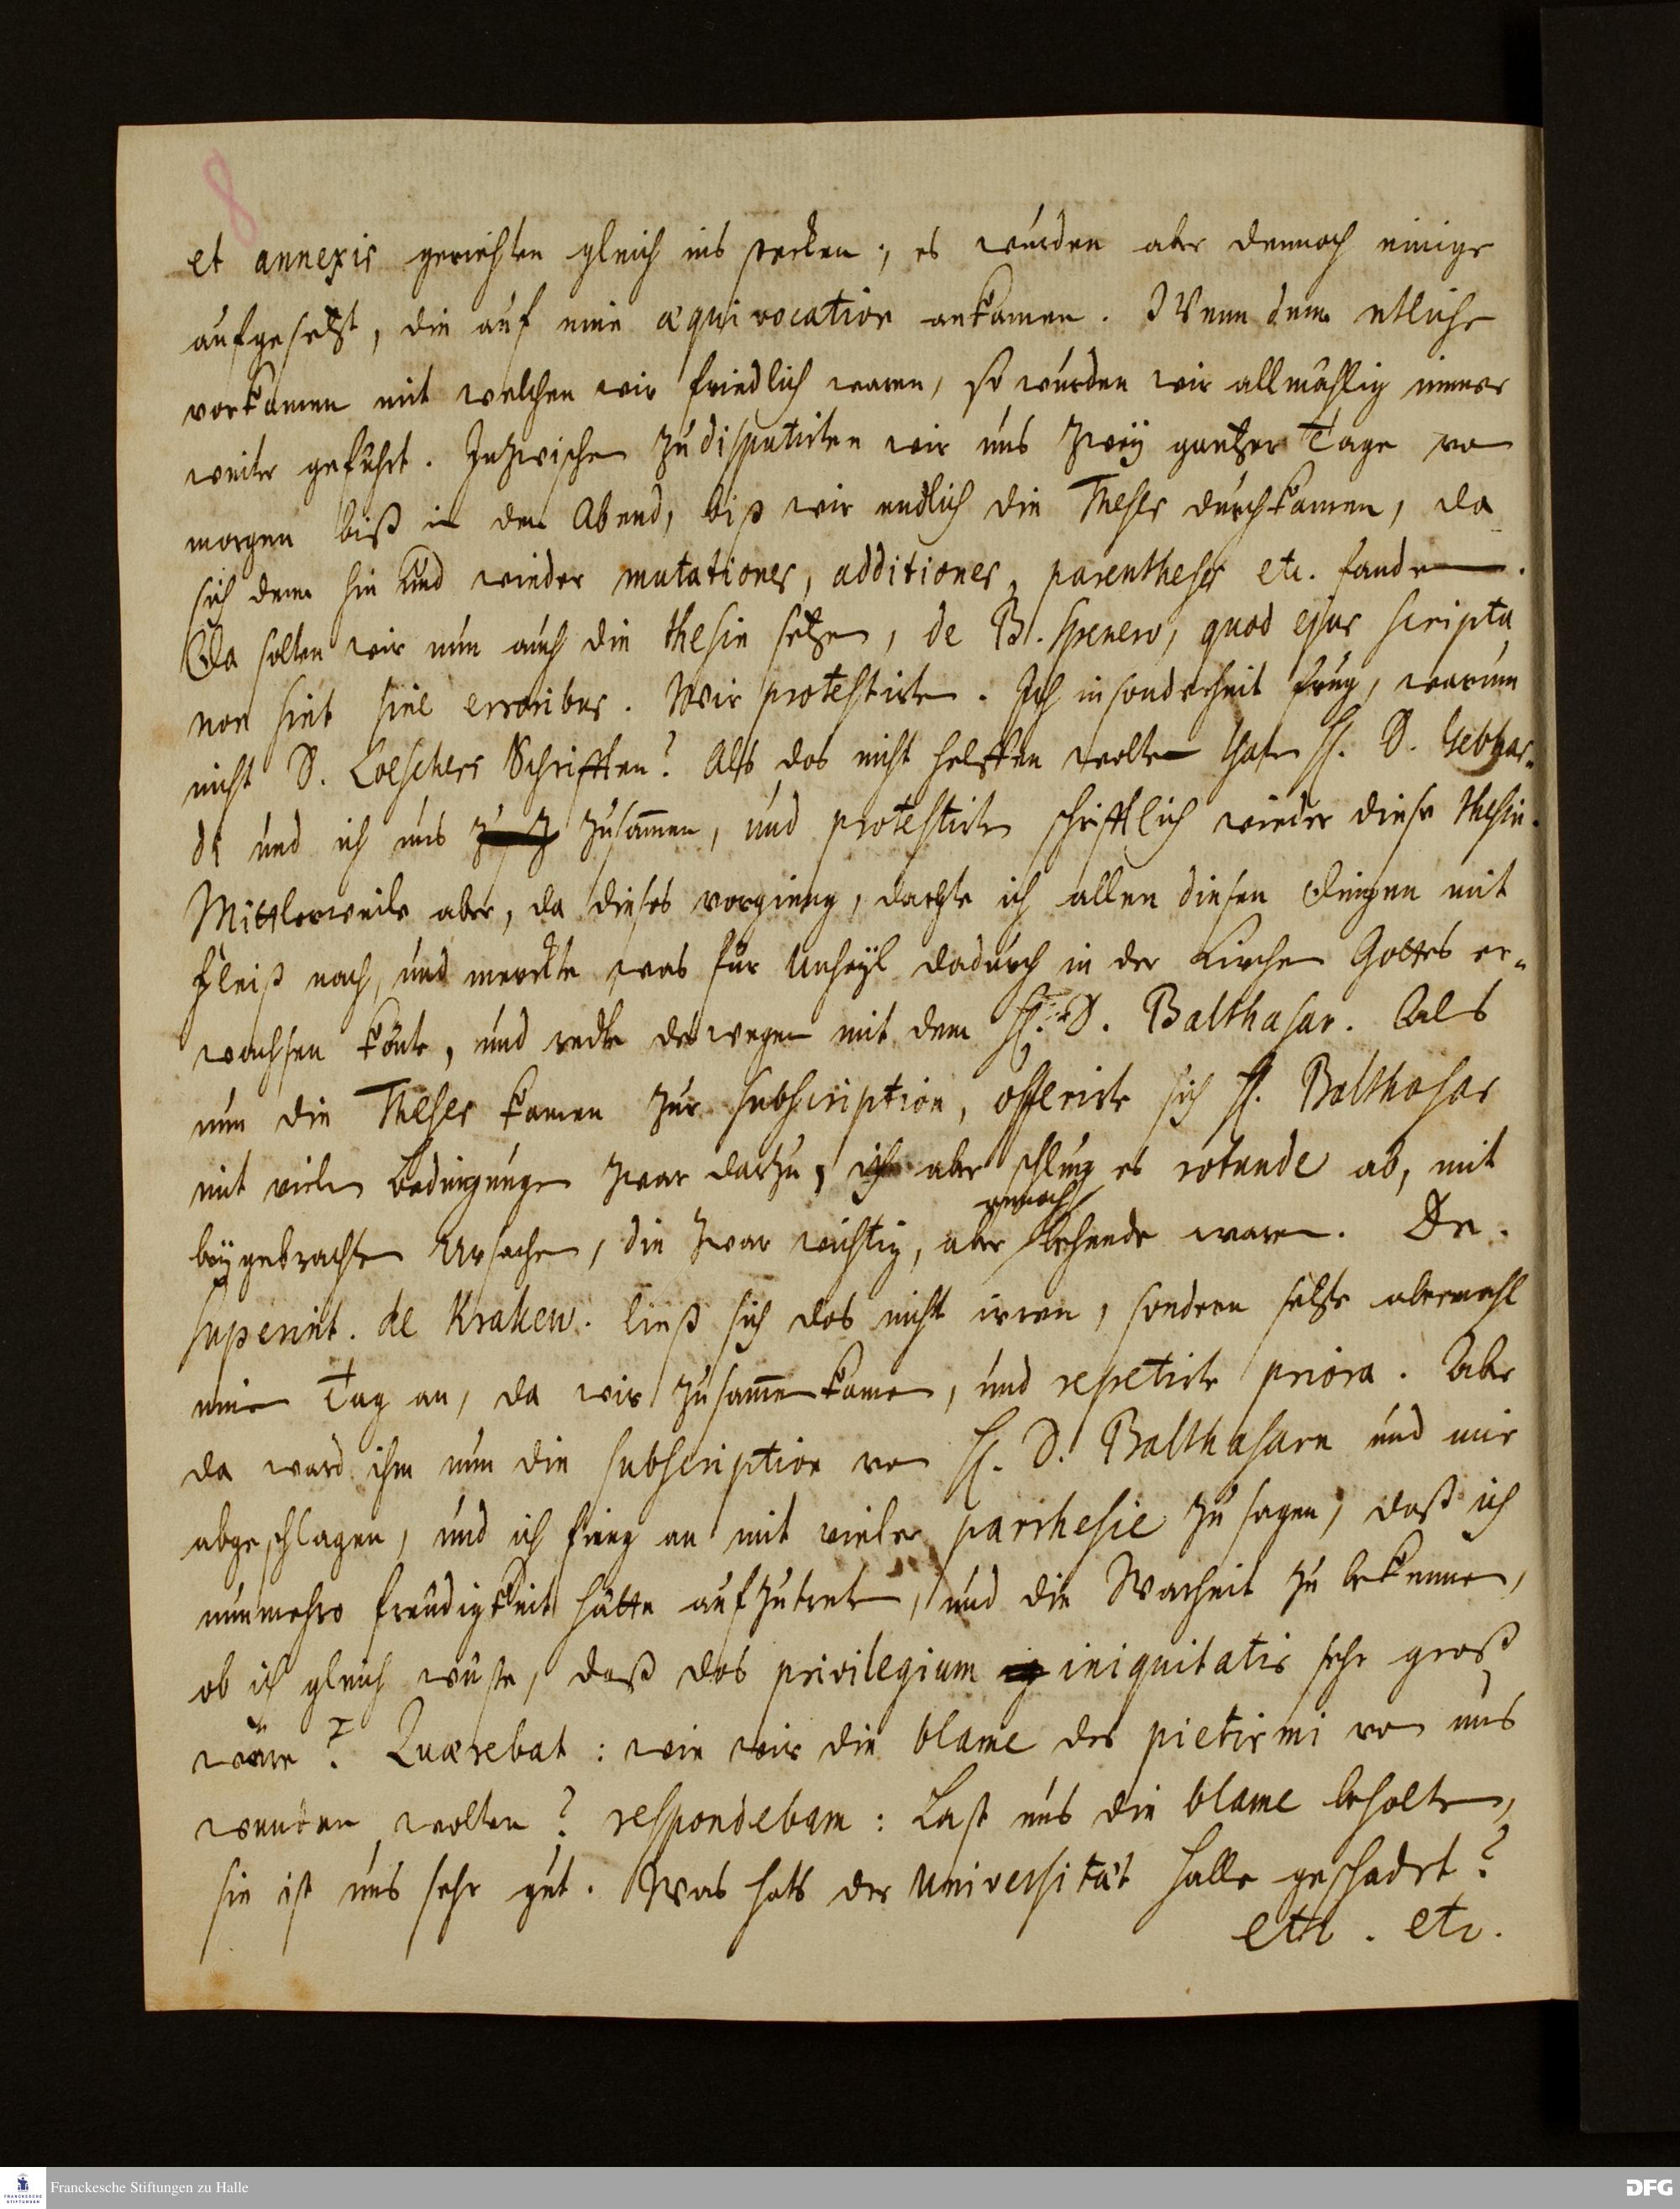 8
et annexis geriehten gleich ins stecken; es wurden aber dennoch einige
aufgesetzt, die auf eine æquivocation ankamen. Wenn denn etliche
vorkamen mit welchen wir friedlich waren, so wurden wir allmählig immer
weiter geführt. Inzwischen zudisputirten wir uns zwey gantzer Tage von
morgen biß in den Abend, biß wir endlich die Theses durchkamen, da
sich denn hin und wieder mutationes, additiones, parentheses etc. fanden.
Da solten wir nun auch die thesin setzen, de B. Spenero, quod ejus scripta
non sint sine erroribus. Wir protestirten. Ich insonderheit frug, warum
nicht D. Loeschers Schrifften? Alß das nicht helffen wolte thaten H. D. Gebhar-
di und ich uns zusammen, und protestirten schrifftlich wieder diese thesin.
Mittlerweile aber, da dieses vorgieng, dachte ich allen diesen dingen mit
fleiß nach, und merckte was für Unheyl dadurch in der Kirchen Gottes er-
wachsen könte, und redte deswegen mit dem H. D. Balthasar. Als
nun die Theses kamen zur subscription, offerirte sich H. Balthasar
mit vielen bedingungen zwar darzu, ich aber schlug es rotunde ab, mit
beygebrachten Ursachen, die zwar wichtig, aber behende waren. Dn.
Superint. de Krakew. ließ sich das nicht irren, sondern setzte abermahl
einen Tag an, da wir zusammenkamen, und repetirte priora. Aber
da ward ihm nun die subscription von H. D. Balthasarn und mir
abgeschlagen, und ich fieng an mit vieler parrhesie zu sagen, daß ich
nunmehro freudigkeit hätte aufzutreten, und die Warheit zu bekennen,
ob ich gleich wüste, daß das privilegium iniquitatis sehr groß
wäre? Quærebat: wie wir die blame des pietismi von uns
wenden wolten? respondebam: Last uns die blame behalten,
sie ist uns sehr gut. Was hats der Universität Halle geschadet?
etc. etc.
Franckesche Stiftungen zu Halle
DFG